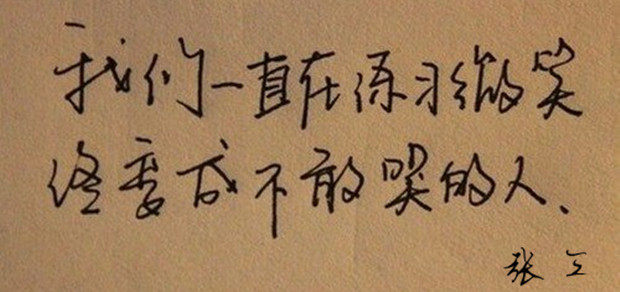 我们一直在练习微笑
终变成不敢哭的人、
张